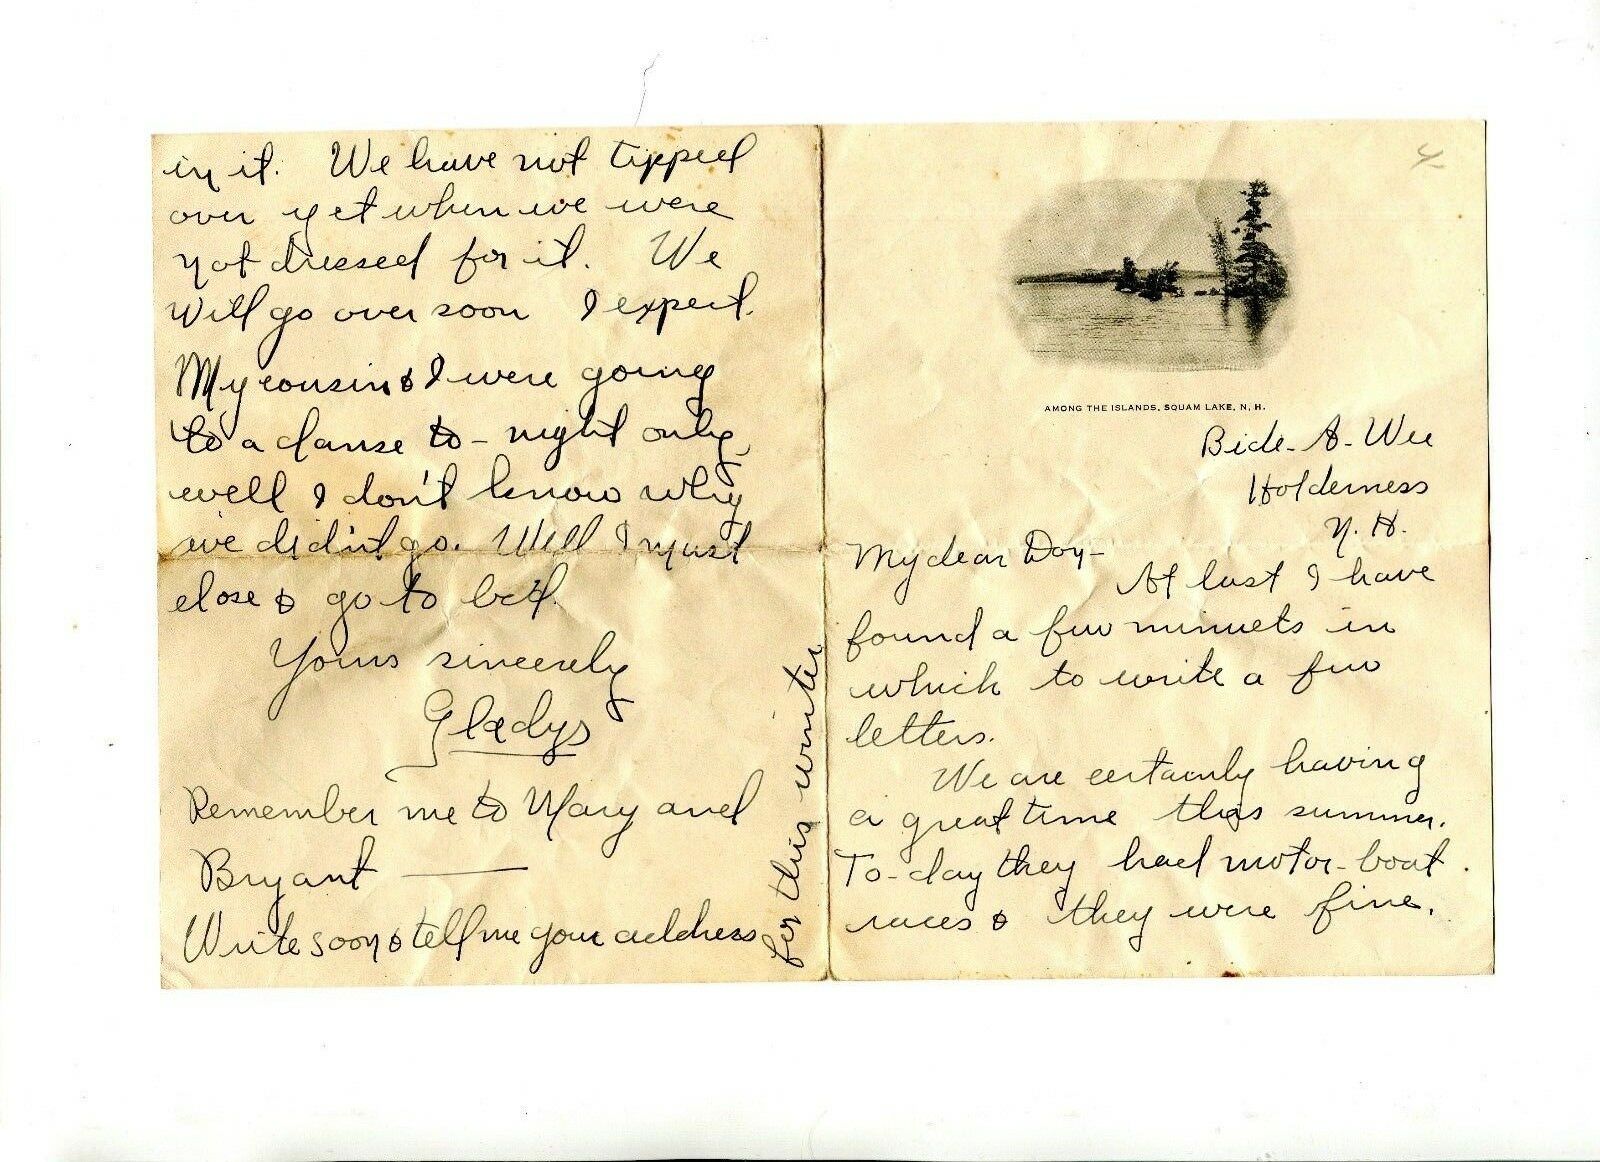 in it. We have not tipped
over yet when we were
not dressed for it. We
will go over soon I expect.
My cousin & I were going
to a danse to-night only,
well I don't know why
we didn't go. Well I must
close & go to bed.
Yours sincerely
Gladys
Remember me to Mary and
Bryant
Write soon & tell me your address
for this winter
AMONG THE ISLANDS, SQUAM LAKE, N. H.
Bide-A-Wee
Holderness
N. H.
My dear Doy-
At last I have
found a few minuets in
which to write a few
letters.
We are certainly having
a great time this summer.
To-day they had motor-boat
races & they were fine.